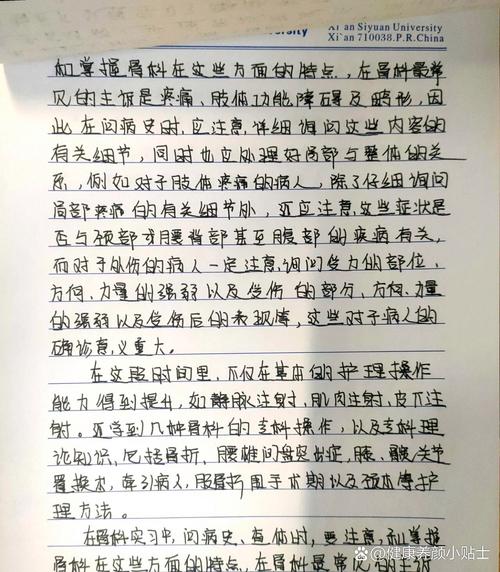 ersity
Xi`an Siyuan University
Xi`an 710038.P.R.China
和掌握骨科在这些方面的特点, 在骨科最常
见的主诉是疼痛、肢体功能障碍及畸形, 因
此在问病史时, 应注意详细询问这些内容的
有关细节, 同时也应处理好局部与整体的关
系, 例如对于肢体疼痛的病人, 除了仔细询问
局部疼痛的有关细节外, 还应注意这些症状是
否与颈部或腰背部甚至腹部的疾病有关,
而对于外伤的病人一定注意询问受力的部位、
方向、力量的强弱以及受伤的部分、方向、力量
的强弱以及受伤后的表现情, 这些对于病人的
确诊意义重大。
在这段时间里, 不仅在基本的护理操作
能力得到提升, 如静脉注射、肌肉注射、皮下注
射。还学到几种骨科的专科操作, 以及专科理
论知识、包括骨折、腰椎间盘突出症, 膝、髋关节
置换术, 牵引病人, 股骨折围手术期以及预术等护
理方法。
在骨科实习中, 问病史、查体时, 要注意和掌握
骨科在这些方面的特点, 在骨科最常见的主诉
@健康养颜小贴士